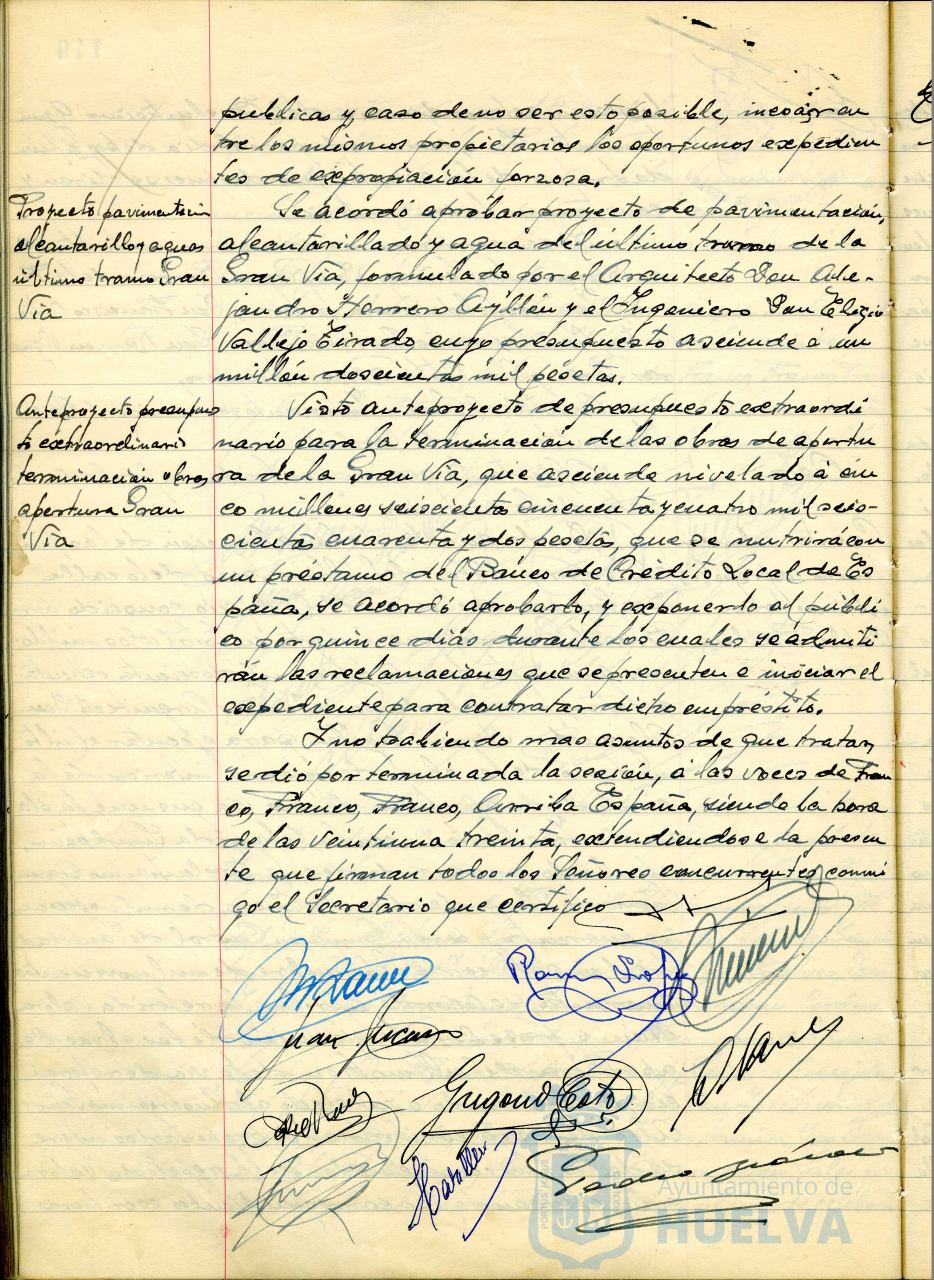 publicas y, caso de no ser esto posible, incoar en
tre los mismos propietarios los oportunos expedien
tes de expropiación forzosa.
Proyecto pavimentación
alcantarillo y aguas
último tramo Gran
Vía
Se acordó aprobar proyecto de pavimentación,
alcantarillado y agua del último tramo de la
Gran Vía, formulado por el Arquitecto Don Ale-
jandro Herrero Ayllón y el Ingeniero Don Eligio
Vallejo Tirado, cuyo presupuesto asciende á un
millón doscientas mil pesetas.
Anteproyecto presupues
to extraordinario
terminación obras
apertura Gran
Vía
Visto anteproyecto de presupuesto extraordi
nario para la terminación de las obras de apertu
ra de la Gran Vía, que asciende nivelado á cin
co millones seiscientas cincuenta y cuatro mil seis-
cientas cuarenta y dos pesetas, que se nutrirá con
un préstamo del Banco de Crédito Local de Es
paña, se acordó aprobarlo, y exponerlo al públi
co por quince días durante los cuales se admiti
rán las reclamaciones que se presenten e iniciar el
expediente para contratar dicho empréstito.
Y no habiendo mas asuntos de que tratar,
se dió por terminada la sesión, á las voces de Fran
co, Franco, Franco, Arriba España, siendo la hora
de las veintiuna treinta, extendiendose la presen
te que firman todos los Señores concurrentes conmi
go el Secretario que certifico
Ayuntamiento de
HUELVA